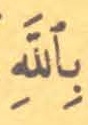 بِاللَّهِ